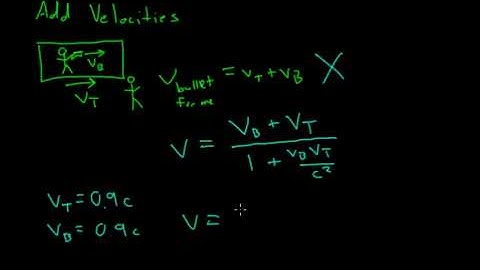 Add Velocities
V_B
V_T
V_bullet for me = V_T + V_B X
V = (V_B + V_T) / (1 + V_B V_T / c²)
V_T = 0.9c
V_B = 0.9c V =